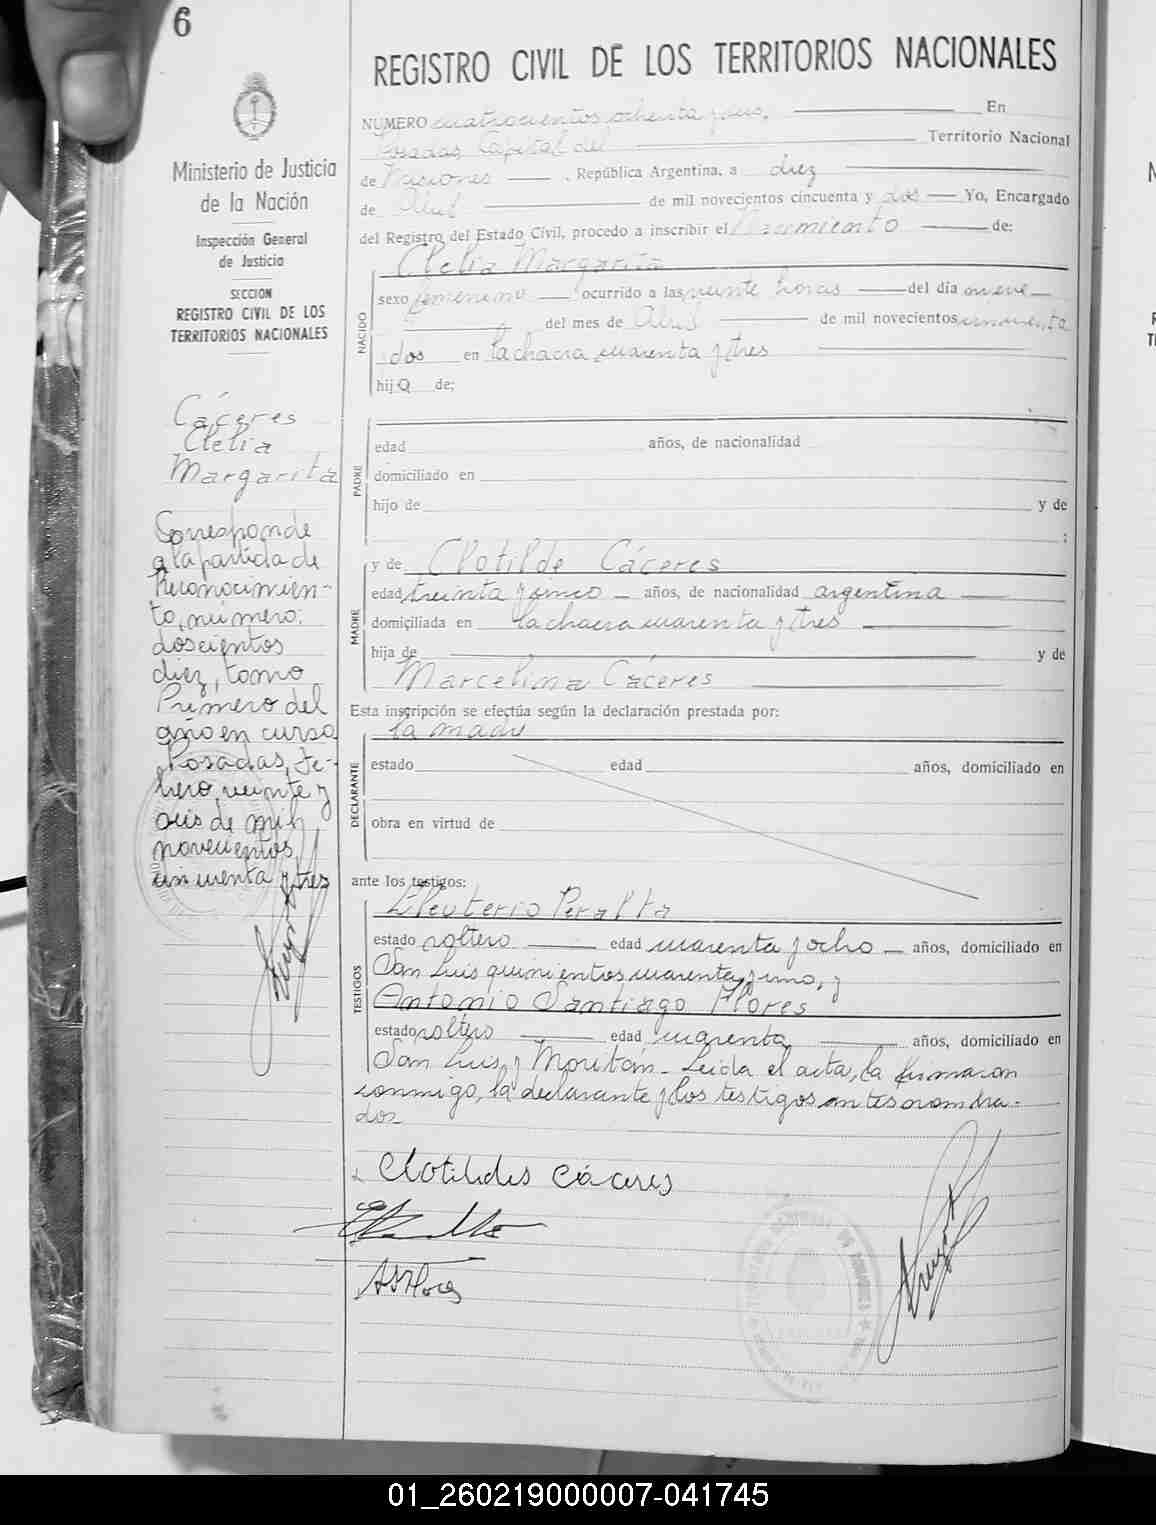 6
REGISTRO CIVIL DE LOS TERRITORIOS NACIONALES
Ministerio de Justicia
de la Nación
Inspección General
de Justicia
SECCION
REGISTRO CIVIL DE LOS
TERRITORIOS NACIONALES
Cáceres
Clelia
Margarita
Corresponde
a la partida de
Reconocimien-
to, número:
doscientos
diez, tomo
Primero del
año en curso
Posadas, Fe-
brero, veinte y
seis de mil
novecientos
cincuenta y tres
NUMERO cuatrocientos ochenta y seis. En
Posadas Capital del Territorio Nacional
de Misiones , República Argentina, a diez
de Abril de mil novecientos cincuenta y dos Yo, Encargado
del Registro del Estado Civil, procedo a inscribir el Nacimiento de:
NACIDO
Clelia Margarita
sexo femenino ocurrido a las veinte horas del día nueve
del mes de Abril de mil novecientos cincuenta
dos en la chacra cuarenta y tres
hija de;
PADRE
edad años, de nacionalidad
domiciliado en
hijo de y de
;
MADRE
y de Clotilde Cáceres
edad treinta y cinco años, de nacionalidad argentina
domiciliada en la chacra cuarenta y tres
hija de y de
Marcelina Cáceres
Esta inscripción se efectúa según la declaración prestada por:
la madre
DECLARANTE
estado edad años, domiciliado en
obra en virtud de
ante los testigos:
TESTIGOS
Eleuterio Peralta
estado soltero edad cuarenta y ocho años, domiciliado en
San Luis quinientos cuarenta y uno, y
Antonio Santiago Flores
estado soltero edad cuarenta años, domiciliado en
San Luis y Moritán. Leida el acta, la firmaron
conmigo, la declarante y los testigos antes nombra-
dos
Clotildes Cáceres
ASFlores
01_260219000007-041745